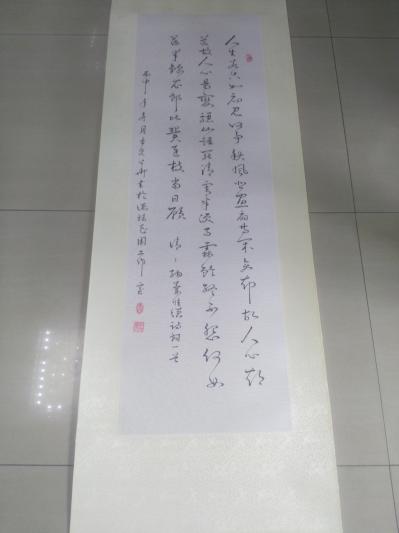 人生若只如初见何事秋風悲画扇等闲变却故人心却
道故人心易变骊山语罷清宵半泪雨霖铃终不怨何如
薄幸锦衣郎比翼连枝当日愿 清 纳兰性德诗词一首
丙申年春月 书於 花园工作室